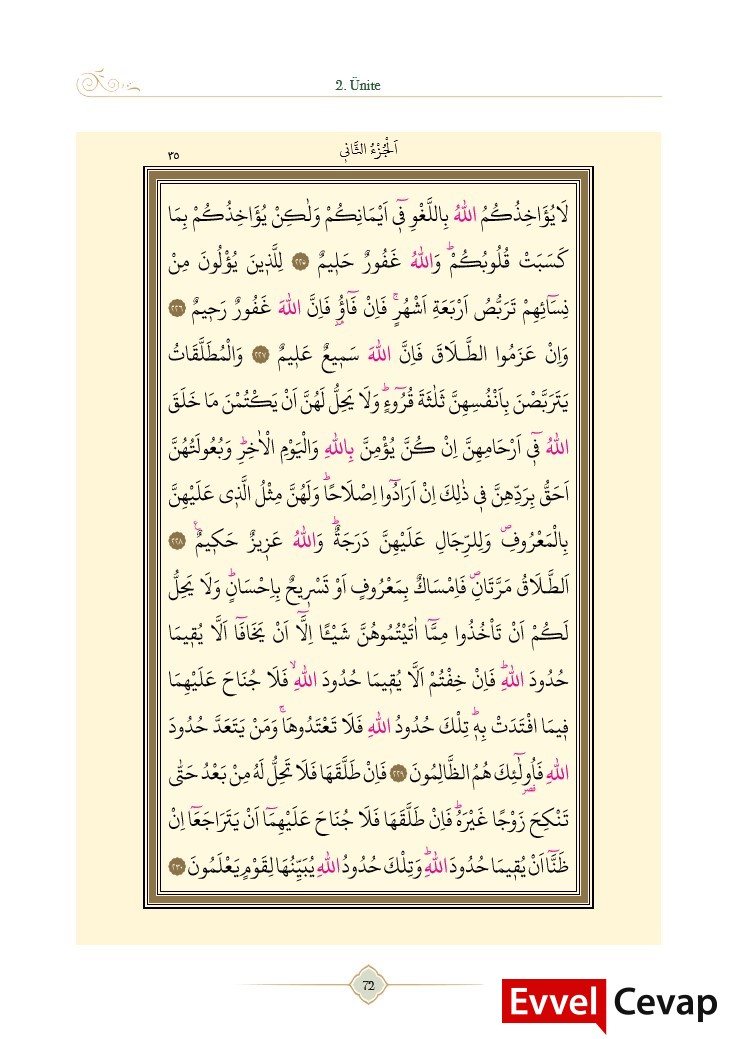 2. Ünite
اَلْجُزْءُ الثَّانٖي
٣٥
لَا يُؤَاخِذُكُمُ اللّٰهُ بِاللَّغْوِ فٖٓي اَيْمَانِكُمْ وَلٰكِنْ يُؤَاخِذُكُمْ بِمَا
كَسَبَتْ قُلُوبُكُمْؕ وَاللّٰهُ غَفُورٌ حَلٖيمٌ ٢٢٥ لِلَّذٖينَ يُؤْلُونَ مِنْ
نِسَٓائِهِمْ تَرَبُّصُ اَرْبَعَةِ اَشْهُرٍۚ فَاِنْ فَٓاؤُ۫ فَاِنَّ اللّٰهَ غَفُورٌ رَحٖيمٌ ٢٢٦
وَاِنْ عَزَمُوا الطَّلَاقَ فَاِنَّ اللّٰهَ سَمٖيعٌ عَلٖيمٌ ٢٢٧ وَالْمُطَلَّقَاتُ
يَتَرَبَّصْنَ بِاَنْفُسِهِنَّ ثَلٰثَةَ قُرُٓوءٍؕ وَلَا يَحِلُّ لَهُنَّ اَنْ يَكْتُمْنَ مَا خَلَقَ
اللّٰهُ فٖٓي اَرْحَامِهِنَّ اِنْ كُنَّ يُؤْمِنَّ بِاللّٰهِ وَالْيَوْمِ الْاٰخِرِؕ وَبُعُولَتُهُنَّ
اَحَقُّ بِرَدِّهِنَّ فٖي ذٰلِكَ اِنْ اَرَادُٓوا اِصْلَاحًاؕ وَلَهُنَّ مِثْلُ الَّذٖي عَلَيْهِنَّ
بِالْمَعْرُوفِࣕ وَلِلرِّجَالِ عَلَيْهِنَّ دَرَجَةٌؕ وَاللّٰهُ عَزٖيزٌ حَكٖيمٌ۟ ٢٢٨
اَلطَّلَاقُ مَرَّتَانِࣕ فَاِمْسَاكٌ بِمَعْرُوفٍ اَوْ تَسْرٖيحٌ بِاِحْسَانٍؕ وَلَا يَحِلُّ
لَكُمْ اَنْ تَأْخُذُوا مِمَّٓا اٰتَيْتُمُوهُنَّ شَيْـًٔا اِلَّٓا اَنْ يَخَافَٓا اَلَّا يُقٖيمَا
حُدُودَ اللّٰهِؕ فَاِنْ خِفْتُمْ اَلَّا يُقٖيمَا حُدُودَ اللّٰهِۙ فَلَا جُنَاحَ عَلَيْهِمَا
فٖيمَا افْتَدَتْ بِهٖؕ تِلْكَ حُدُودُ اللّٰهِ فَلَا تَعْتَدُوهَاۚ وَمَنْ يَتَعَدَّ حُدُودَ
اللّٰهِ فَاُو۬لٰٓئِكَ هُمُ الظَّالِمُونَ ٢٢٩ فَاِنْ طَلَّقَهَا فَلَا تَحِلُّ لَهُ مِنْ بَعْدُ حَتّٰى
تَنْكِحَ زَوْجًا غَيْرَهُؕ فَاِنْ طَلَّقَهَا فَلَا جُنَاحَ عَلَيْهِمَٓا اَنْ يَتَرَاجَعَٓا اِنْ
ظَنَّٓا اَنْ يُقٖيمَا حُدُودَ اللّٰهِؕ وَتِلْكَ حُدُودُ اللّٰهِ يُبَيِّنُهَا لِقَوْمٍ يَعْلَمُونَ ٢٣٠
72
Evvel Cevap